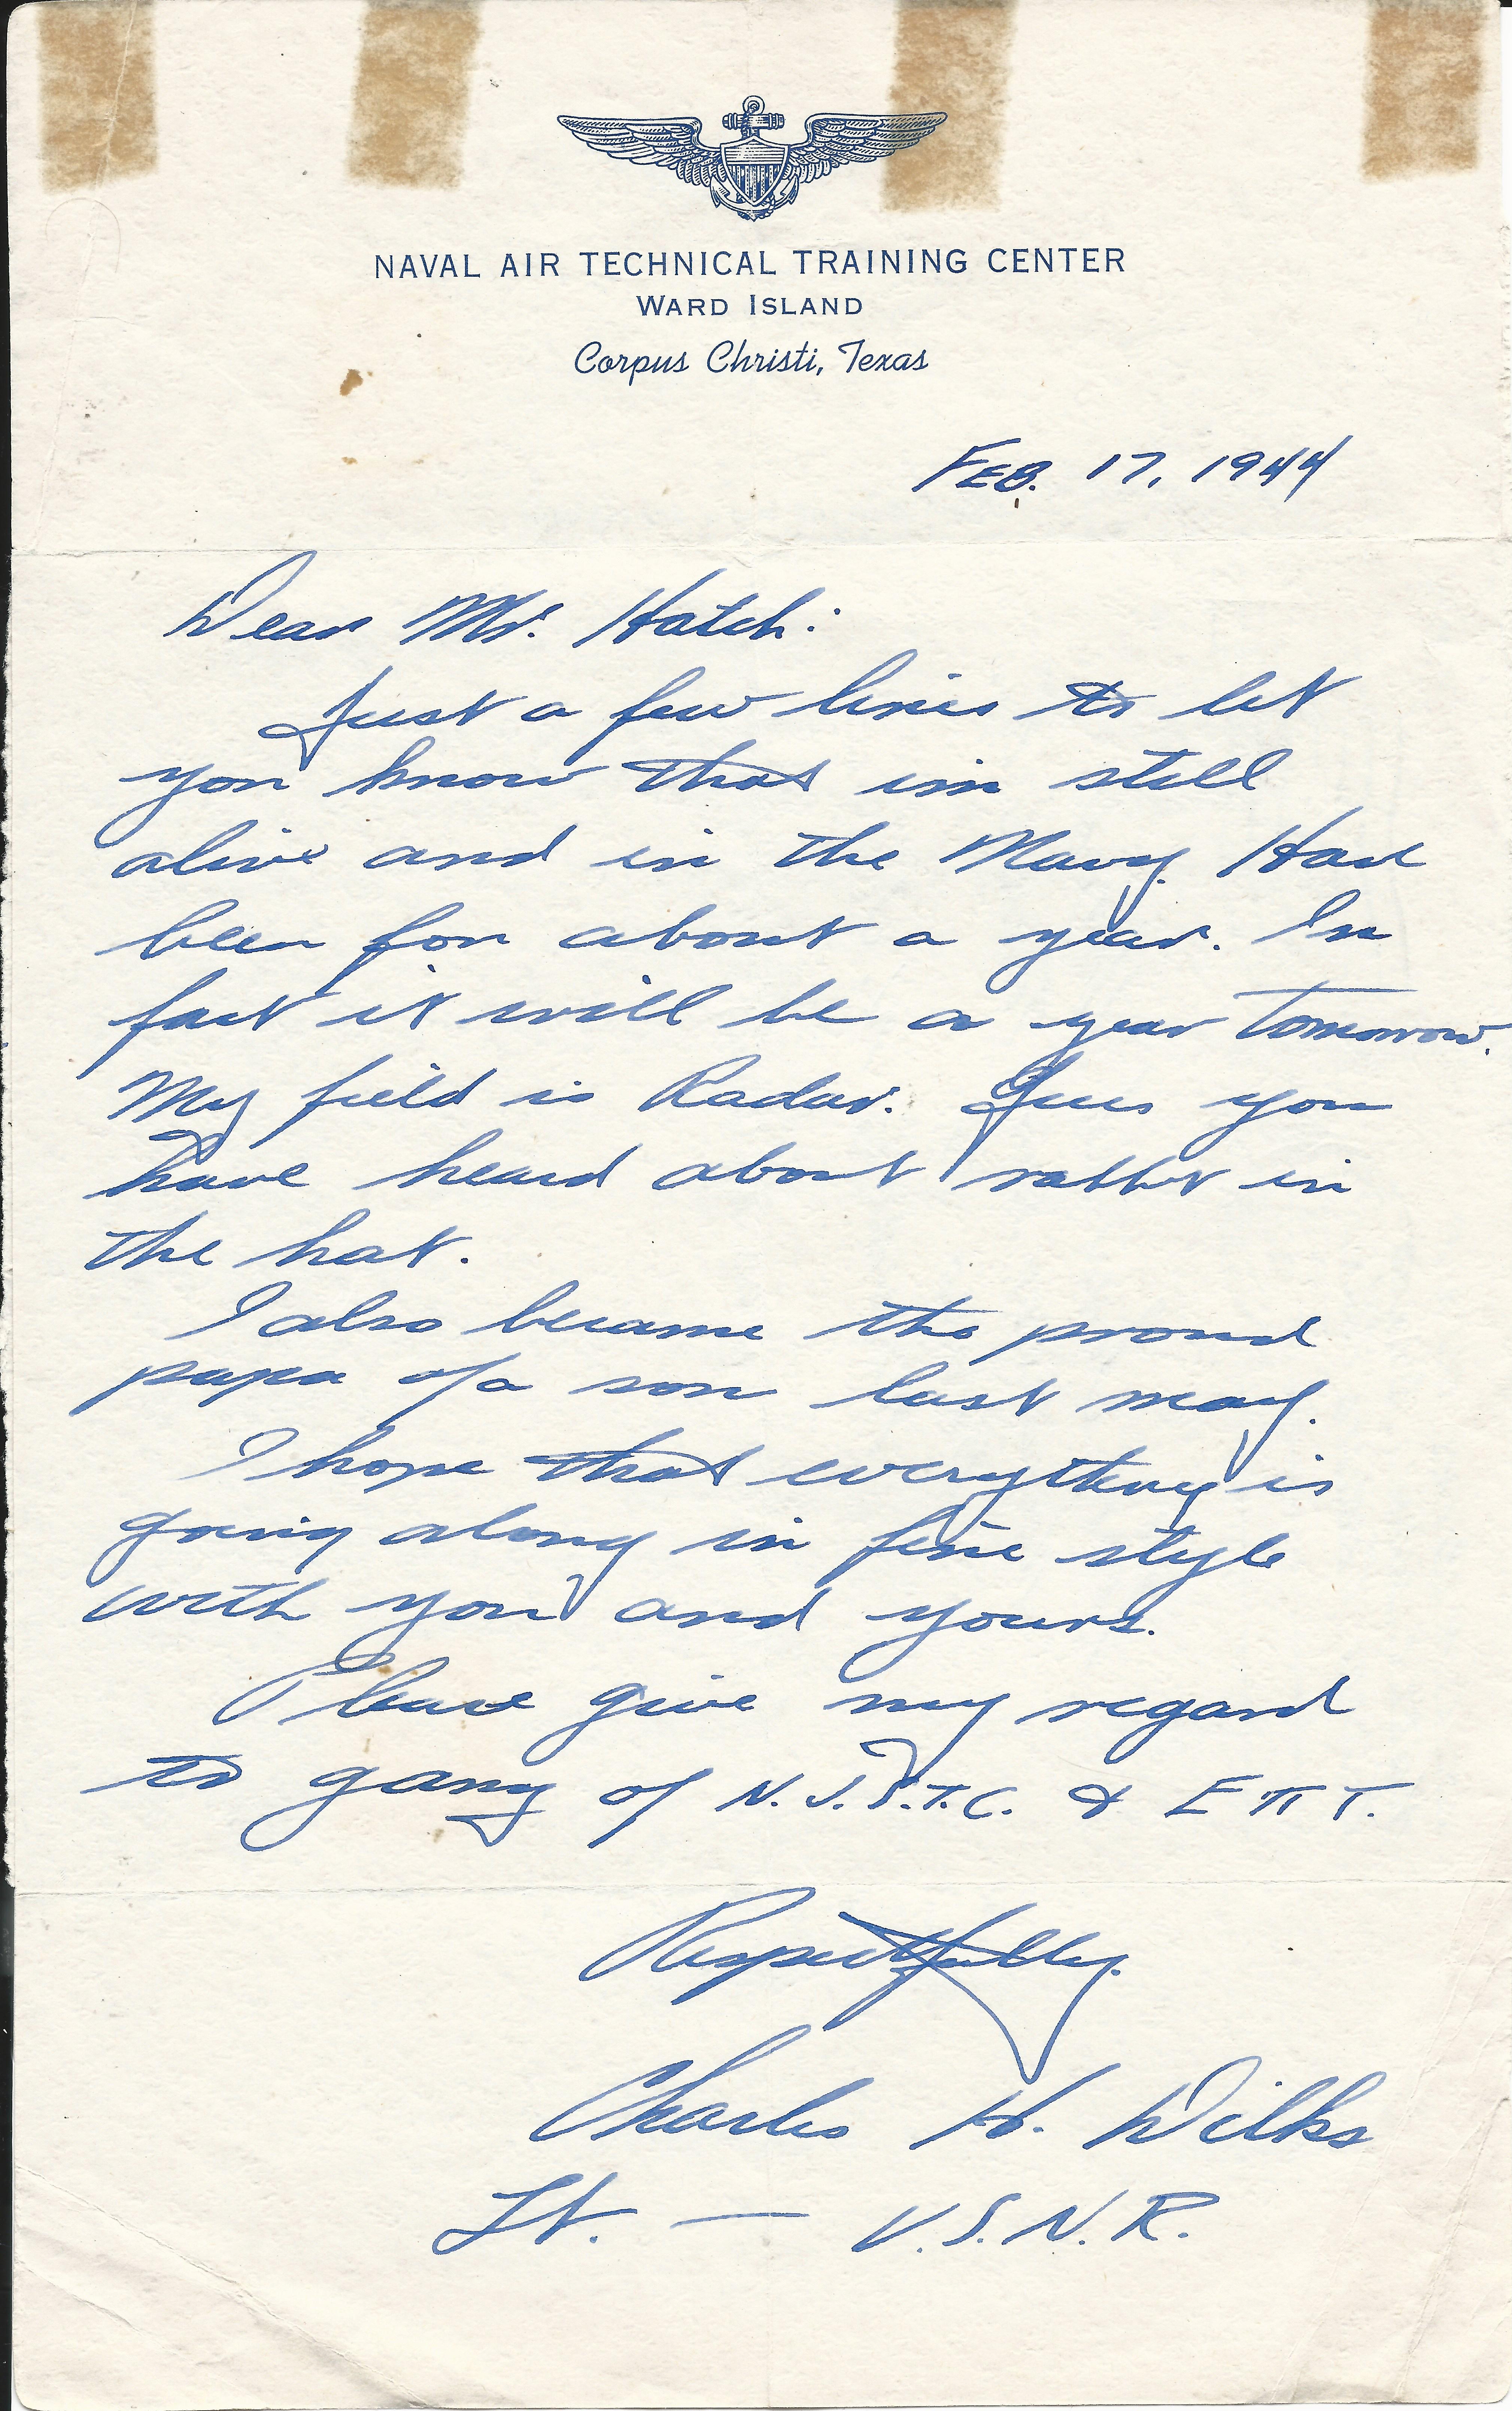 NAVAL AIR TECHNICAL TRAINING CENTER
WARD ISLAND
Corpus Christi, Texas
FEB. 17, 1944
Dear Mr. Hatch:
Just a few lines to let
you know that im still
alive and in the Navy. Have
been for about a year. In
fact it will be a year tomorrow.
My field is Radar. Gues you
have heard about rabbit in
the hat.
I also became the proud
papa of a son last may.
I hope that everything is
going along in fine style
with you and yours.
Please give my regard
to gang of N.J.S.T.C. & E π T.
Respectfully.
Charles H. Wilks
Lt. — U.S.N.R.